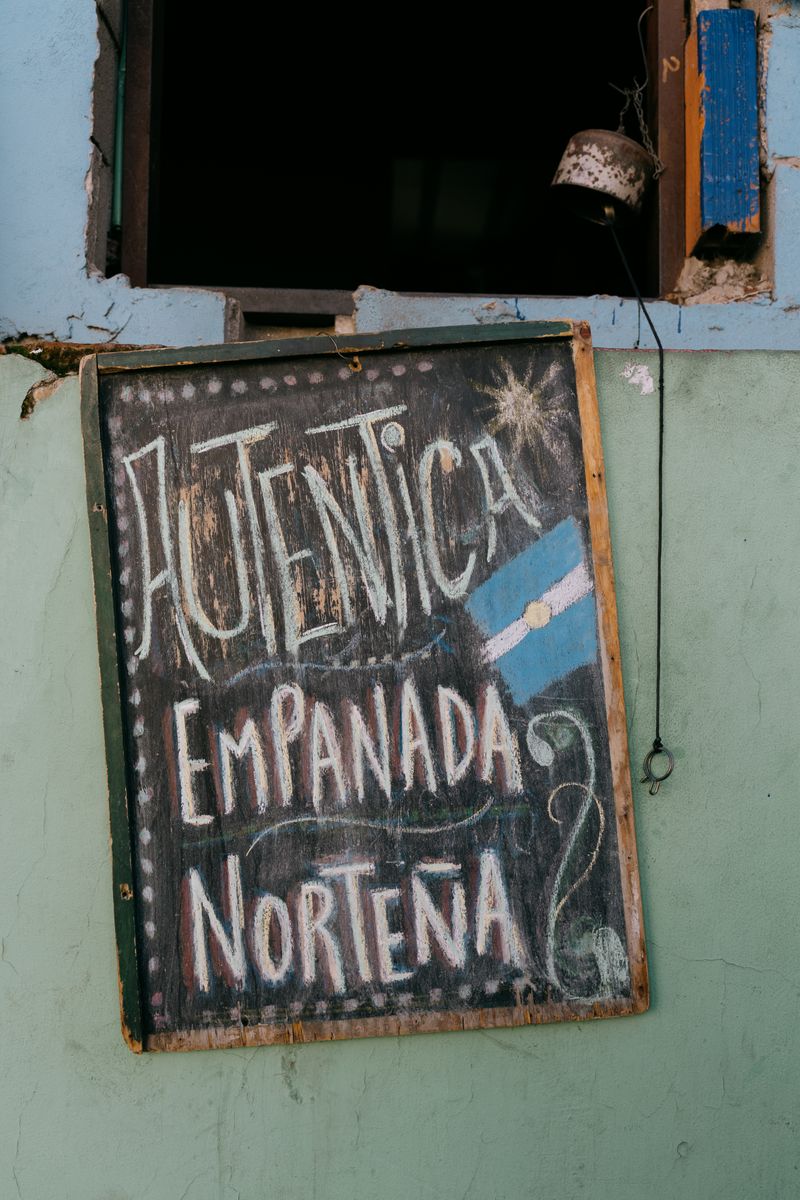 AUTENTiCA
EMPANADA
NORTEÑA